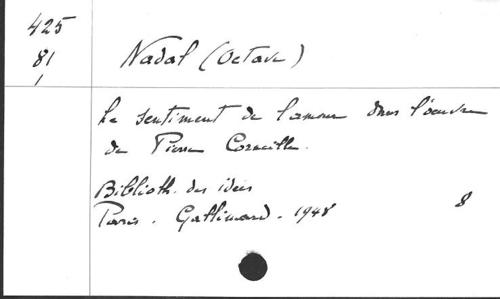 425
81
1
Nadal (Octave)
Le sentiment de l'amour dans l'oeuvre
de Pierre Corneille.
Biblioth. des idées
Paris. Gallimard. 1948 8